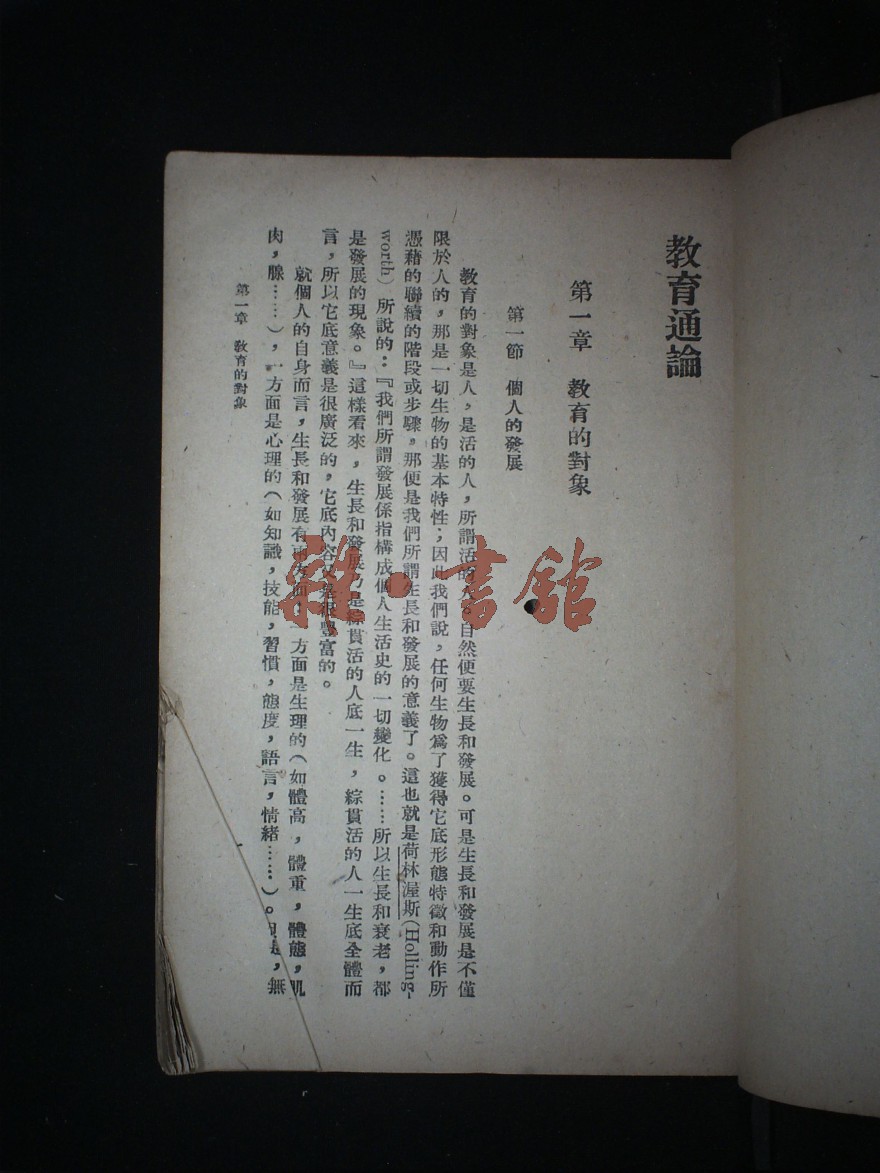 教育通論
第一章　教育的對象
第一節　個人的發展
教育的對象是人，是活的人，所謂活的人。自然便要生長和發展。可是生長和發展是不僅
限於人的，那是一切生物的基本特性；因此我們說，任何生物爲了獲得它底形態特徵和動作所
憑藉的聯續的階段或步驟，那便是我們所謂生長和發展的意義了。這也就是荷林渥斯（Holling-
worth）所說的：『我們所謂發展係指構成個人生活史的一切變化。……所以生長和衰老，都
是發展的現象。』這樣看來，生長和發展乃是綜貫活的人底一生，綜貫活的人一生底全體而
言，所以它底意義是很廣泛的，它底內容又是很豐富的。
就個人的自身而言，生長和發展有兩方面，一方面是生理的（如體高，體重，體態，肌
肉，腺……），一方面是心理的（如知識，技能，習慣，態度，語言，情緒……）。但是，無
第一章　教育的對象
雜·書館